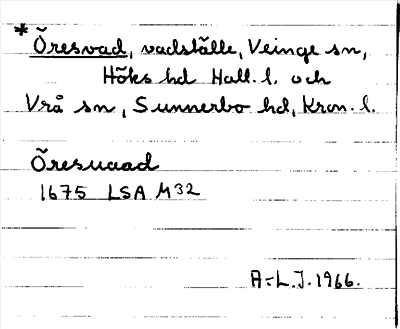 * Öresvad, vadställe, Veinge sn,
Höks hd Hall. l. och
Vrå sn, Sunnerbo hd, Kron. l.
Öresuaad
1675 LSA M32
A-L.J. 1966.